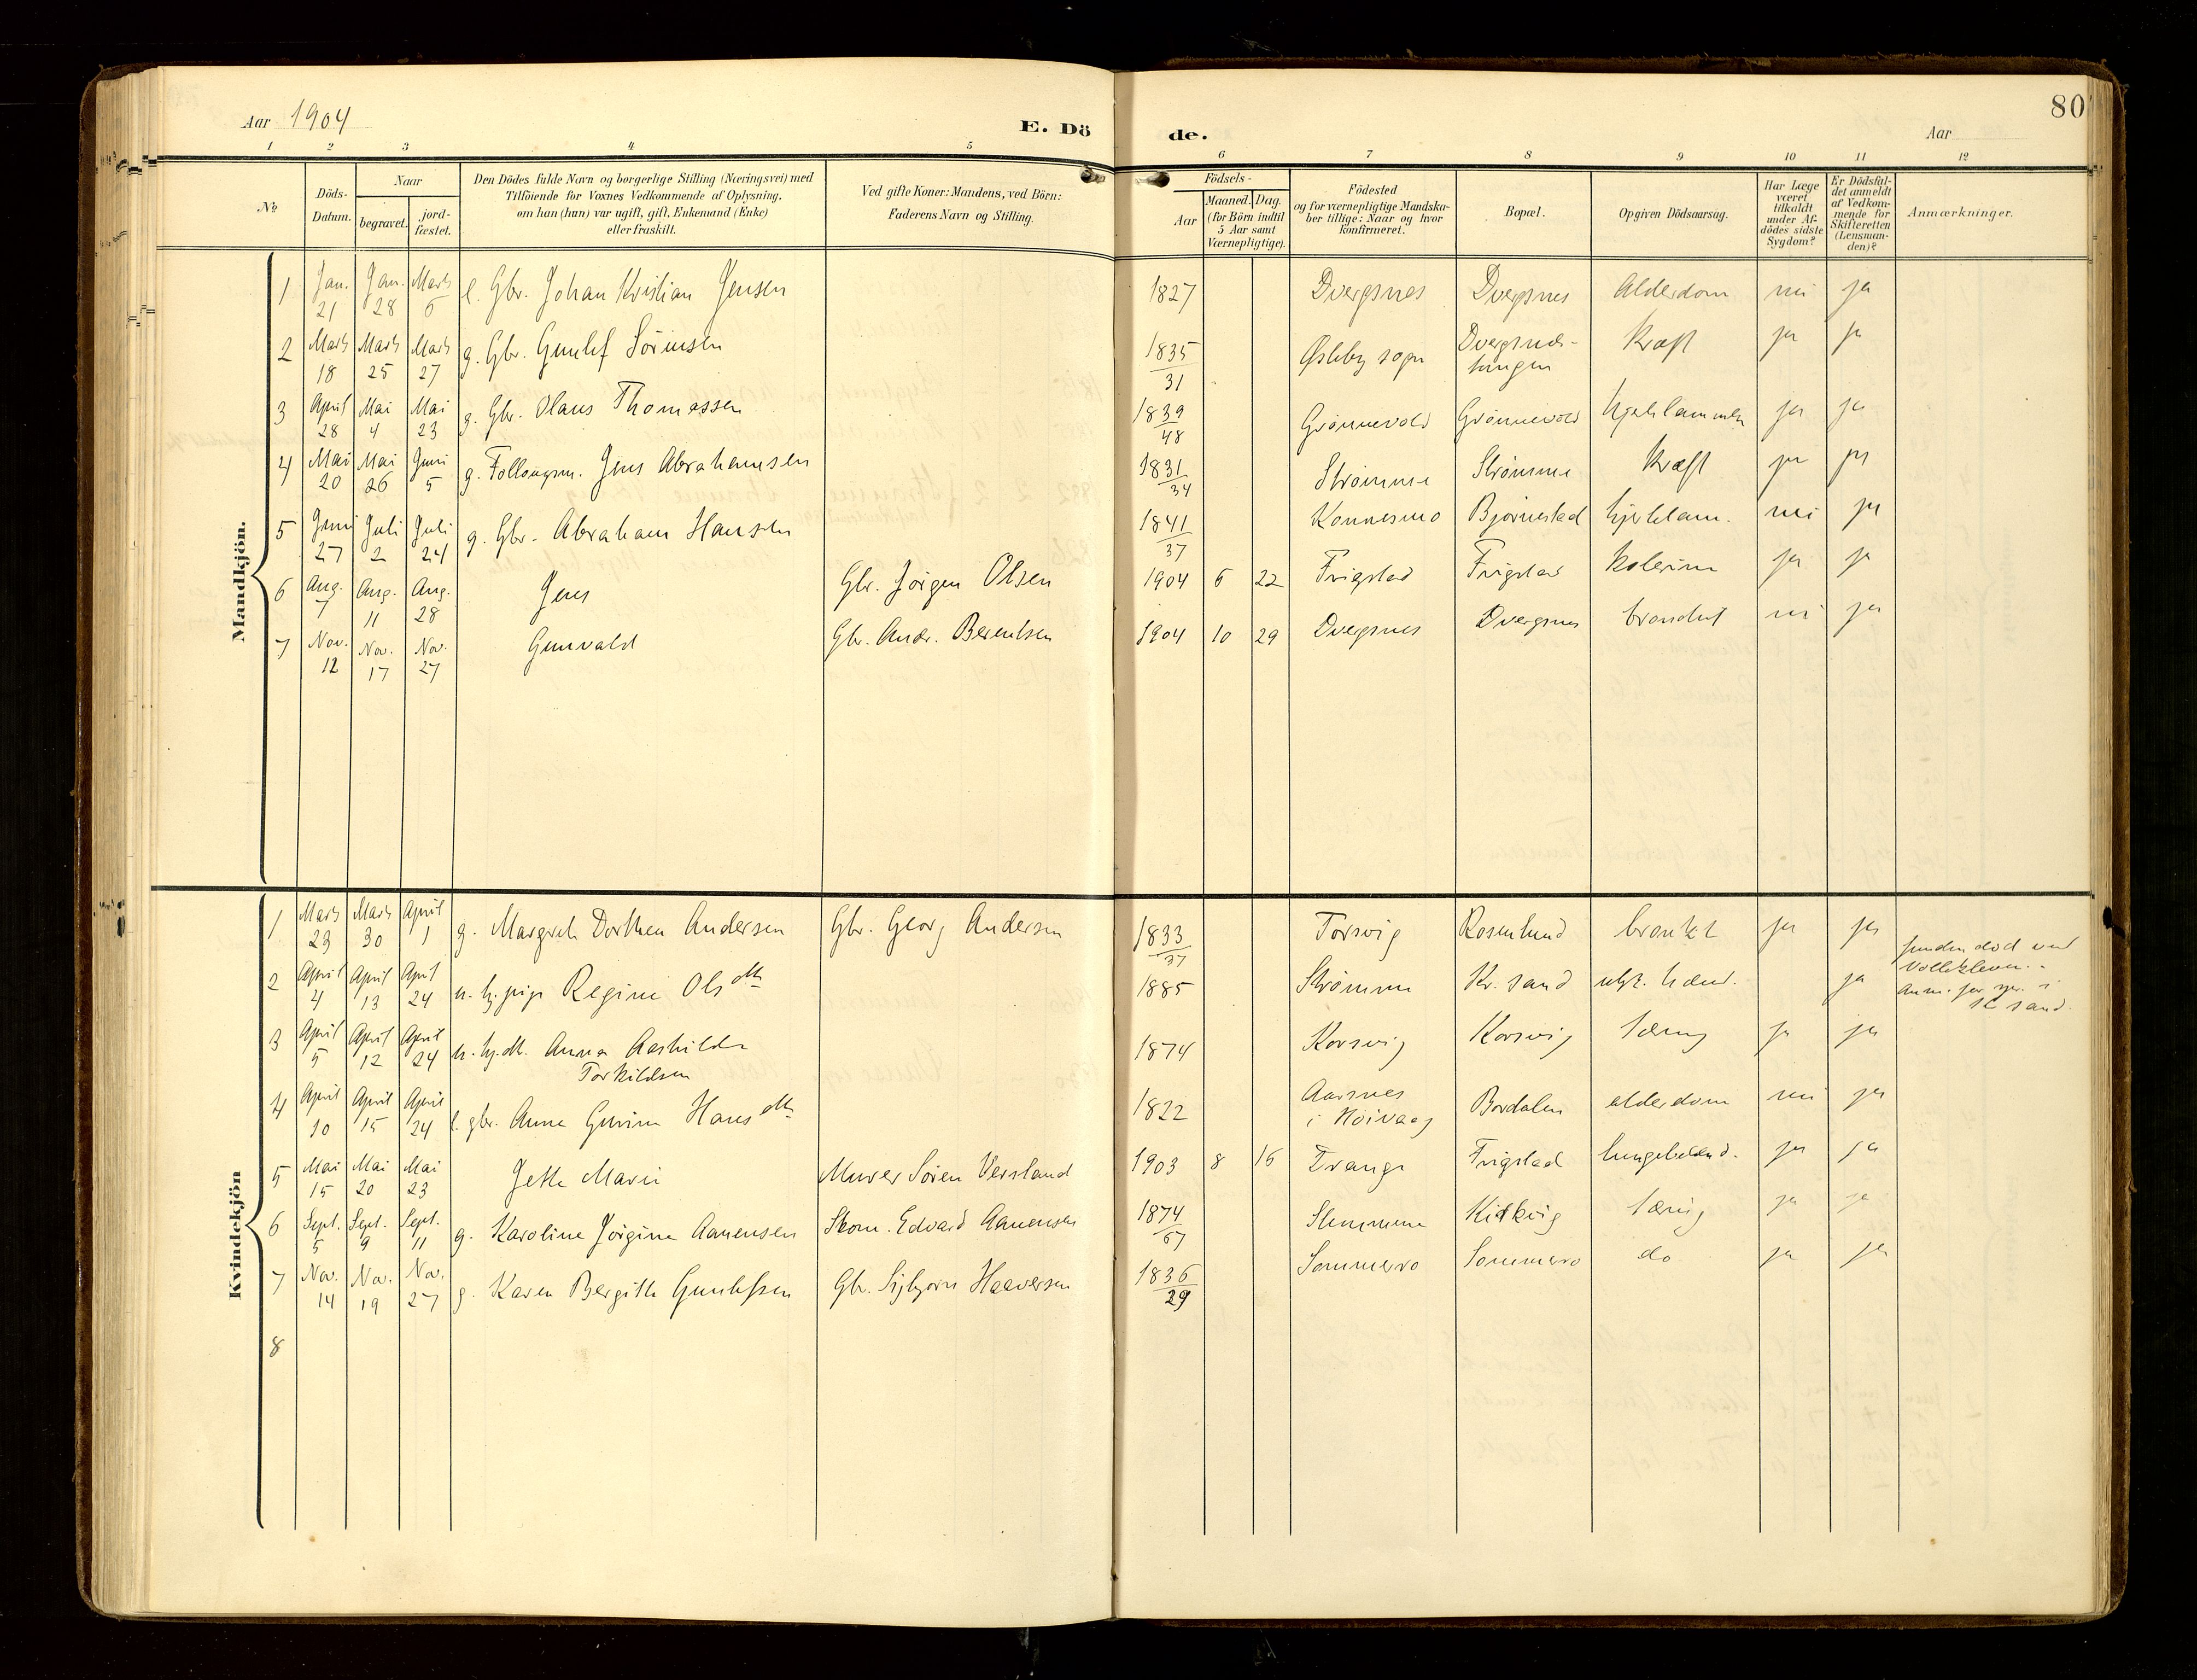 Aar 1904
E. Dö
de.
80
Aar
1 2 3 4 5 6 7 8 9 10 11 12
No
Döds-
Datum.
Naar
begravet.
jord-
fæstet.
Den Dödes fulde Navn og borgerlige Stilling (Næringsvei) med
Tilföiende for Voxnes Vedkommende af Oplysning,
om han (hun) var ugift, gift, Enkemand (Enke)
eller fraskilt.
Ved gifte Koner: Mandens, ved Börn:
Faderens Navn og Stilling.
Födsels-
Aar
Maaned. Dag.
(for Börn indtil
5 Aar samt
Værnepligtige).
Födested
og for værnepligtige Mandska-
ber tillige: Naar og hvor
konfirmeret.
Bopæl.
Opgiven Dödsaarsag.
Har Læge
været
tilkaldt
under Af-
dödes sidste
Sygdom?
Er Dödsfal-
det anmeldt
af Vedkom-
mende for
Skifteretten
(Lensman-
den)?
Anmærkninger.
Mandkjön.
1 Jan. 21 Jan. 28 Marts 6 e. Gbr. Johan Kristian Jensen 1827 Dvergsnes Dvergsnes Alderdom nei ja
2 Marts 18 Marts 25 Marts 27 g. Gbr. Gunlef Sörensen 1835/31 Øsleby sogn Dvergsnes- tangen Kræft ja ja
3 April 28 Mai 4 Mai 23 g. Gbr. Olaus Thomassen 1839/48 Grønnevold Grønnevold hjertelammelse ja ja
4 Mai 20 Mai 26 Juni 5 g. Follaugsm. Jens Abrahamsen 1831/34 Strømme Strømme Kræft ja ja
5 Juni 27 Juli 2 Juli 24 g. Gbr. Abraham Hansen 1841/37 Konnesmo Bjørnestad hjertelam. nei ja
6 Aug. 7 Aug. 11 Aug. 28 Jens Gbr. Jörgen Olsen 1904 6 22 Frigstad Frigstad kolerine ja ja
7 Nov. 12 Nov. 17 Nov. 27 Gunvald Gbr. Andr. Berentsen 1904 10 29 Dvergsnes Dvergsnes nei ja
Kvindekjön
1 Marts 23 Marts 30 April 1 g. Margrete Dorthea Andersen Gbr. Georg Andersen 1833/37 Torsvig Rosenlund bronkt ja ja
2 April 4 April 13 April 24 u. tj.pige Regine Olsdtr 1885 Strømme Kr. sand ulyk. hænd. ja funden død ved
Vollekleven. -
Anm. for spr. i
K sand.
3 April 5 April 12 April 24 u. hj.dtr. Anna Aashilde
Torkildsen 1874 Korsvig Korsvig tæring ja ja
4 April 10 April 15 April 24 e. gbr. Anne Gurine Hansdtr 1822 Aarsnes
i Höivaag Bordalen alderdom nei ja
5 Mai 15 Mai 20 Mai 23 Jette Marie Murer Sören Versland 1903 8 16 Frigstad lungebetænd. ja ja
6 Sept. 5 Sept. 9 Sept. 11 g. Karoline Jörgine Aanensen Skom. Edvard Aanensen 1874/67 Stemmene Kirkvig tæring ja ja
7 Nov. 14 Nov. 19 Nov. 27 g. Karen Bergitte Gunlefsen Gbr. Sigbjørn Haaversen 1836/29 Sommero Sommero do ja ja
8